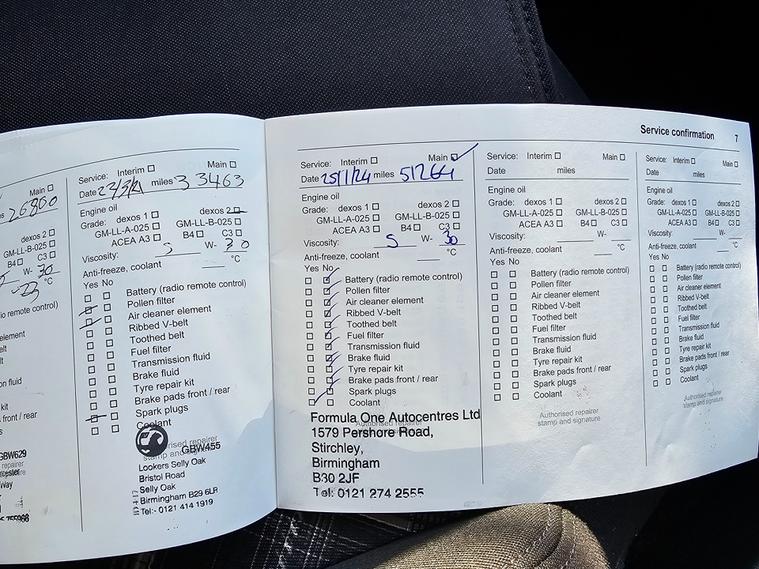 Service confirmation 7
Main
26860
dexos 2
GM-LL-B-025
B4 C3
W- 30
°C
io remote control)
element
elt
lt
on fluid
kit
front / rear
GBW629
Way
Service: Interim Main
Date 23/3/21 miles 33463
Engine oil
Grade: dexos 1 dexos 2
GM-LL-A-025 GM-LL-B-025
ACEA A3 B4 C3
Viscosity: 5 W- 30
Anti-freeze, coolant °C
Yes No
Battery (radio remote control)
Pollen filter
Air cleaner element
Ribbed V-belt
Toothed belt
Fuel filter
Transmission fluid
Brake fluid
Tyre repair kit
Brake pads front / rear
Spark plugs
Coolant
GBW455
Lookers Selly Oak
Bristol Road
Selly Oak
Birmingham B29 6LR
Tel:- 0121 414 1919
Service: Interim Main
Date 25/1/24 miles 51264
Engine oil
Grade: dexos 1 dexos 2
GM-LL-A-025 GM-LL-B-025
ACEA A3 B4 C3
Viscosity: 5 W- 30
Anti-freeze, coolant °C
Yes No
Battery (radio remote control)
Pollen filter
Air cleaner element
Ribbed V-belt
Toothed belt
Fuel filter
Transmission fluid
Brake fluid
Tyre repair kit
Brake pads front / rear
Spark plugs
Coolant
Formula One Autocentres Ltd
1579 Pershore Road,
Stirchley,
Birmingham
B30 2JF
Tel: 0121 274 2555
Service: Interim Main
Date miles
Engine oil
Grade: dexos 1 dexos 2
GM-LL-A-025 GM-LL-B-025
ACEA A3 B4 C3
Viscosity: W-
Anti-freeze, coolant °C
Yes No
Battery (radio remote control)
Pollen filter
Air cleaner element
Ribbed V-belt
Toothed belt
Fuel filter
Transmission fluid
Brake fluid
Tyre repair kit
Brake pads front / rear
Spark plugs
Coolant
Authorised repairer
stamp and signature
Service: Interim Main
Date miles
Engine oil
Grade: dexos 1 dexos 2
GM-LL-A-025 GM-LL-B-025
ACEA A3 B4 C3
Viscosity: W-
Anti-freeze, coolant °C
Yes No
Battery (radio remote control)
Pollen filter
Air cleaner element
Ribbed V-belt
Toothed belt
Fuel filter
Transmission fluid
Brake fluid
Tyre repair kit
Brake pads front / rear
Spark plugs
Coolant
Authorised repairer
stamp and signature